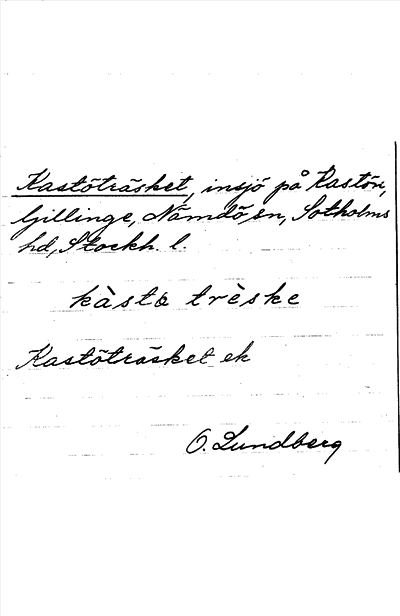 Kastöträsket, insjö på Kastön,
Gillinge, Nämdö sn, Sotholms
hd, Stockh. l.
kàstø trèske
Kastöträsket ek
O. Lundberg